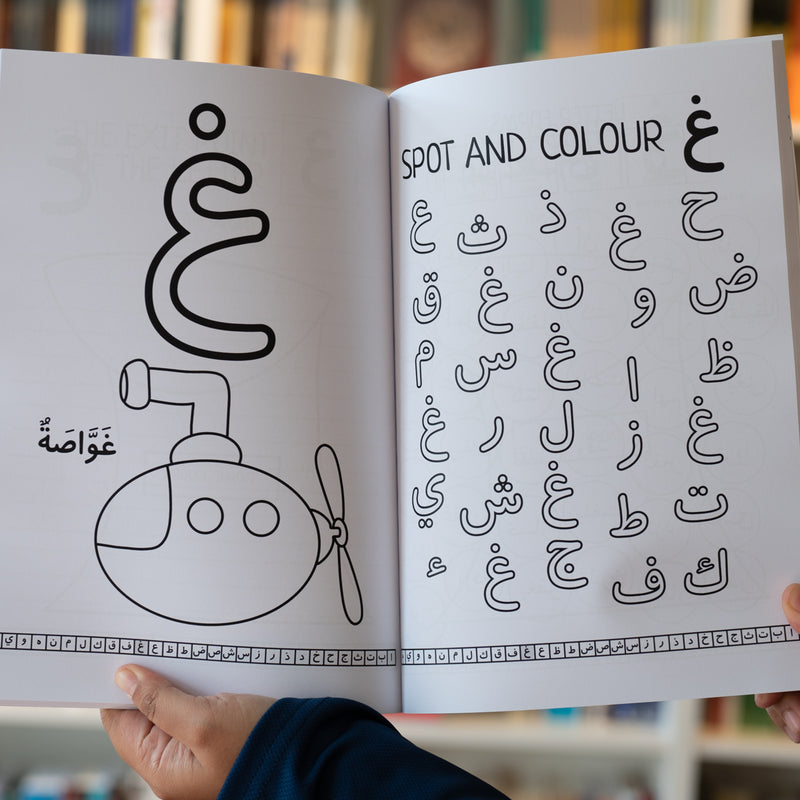 غ
غَوَّاصَةٌ
ا ب ت ث ج ح خ د ذ ر ز س ش ص ض ط ظ ع غ ف ق ك ل م ن ه و ي
SPOT AND COLOUR غ
ح غ ذ ث ع
ض و ن غ ق
ظ ا غ س م
غ ز ل ر غ
ت ط غ ش ي
ك ف ج غ ء
ا ب ت ث ج ح خ د ذ ر ز س ش ص ض ط ظ ع غ ف ق ك ل م ن ه و ي